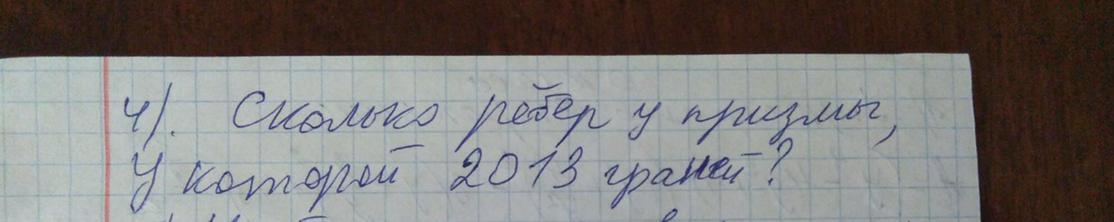 4). Сколько рёбер у призмы,
У которой 2013 граней?